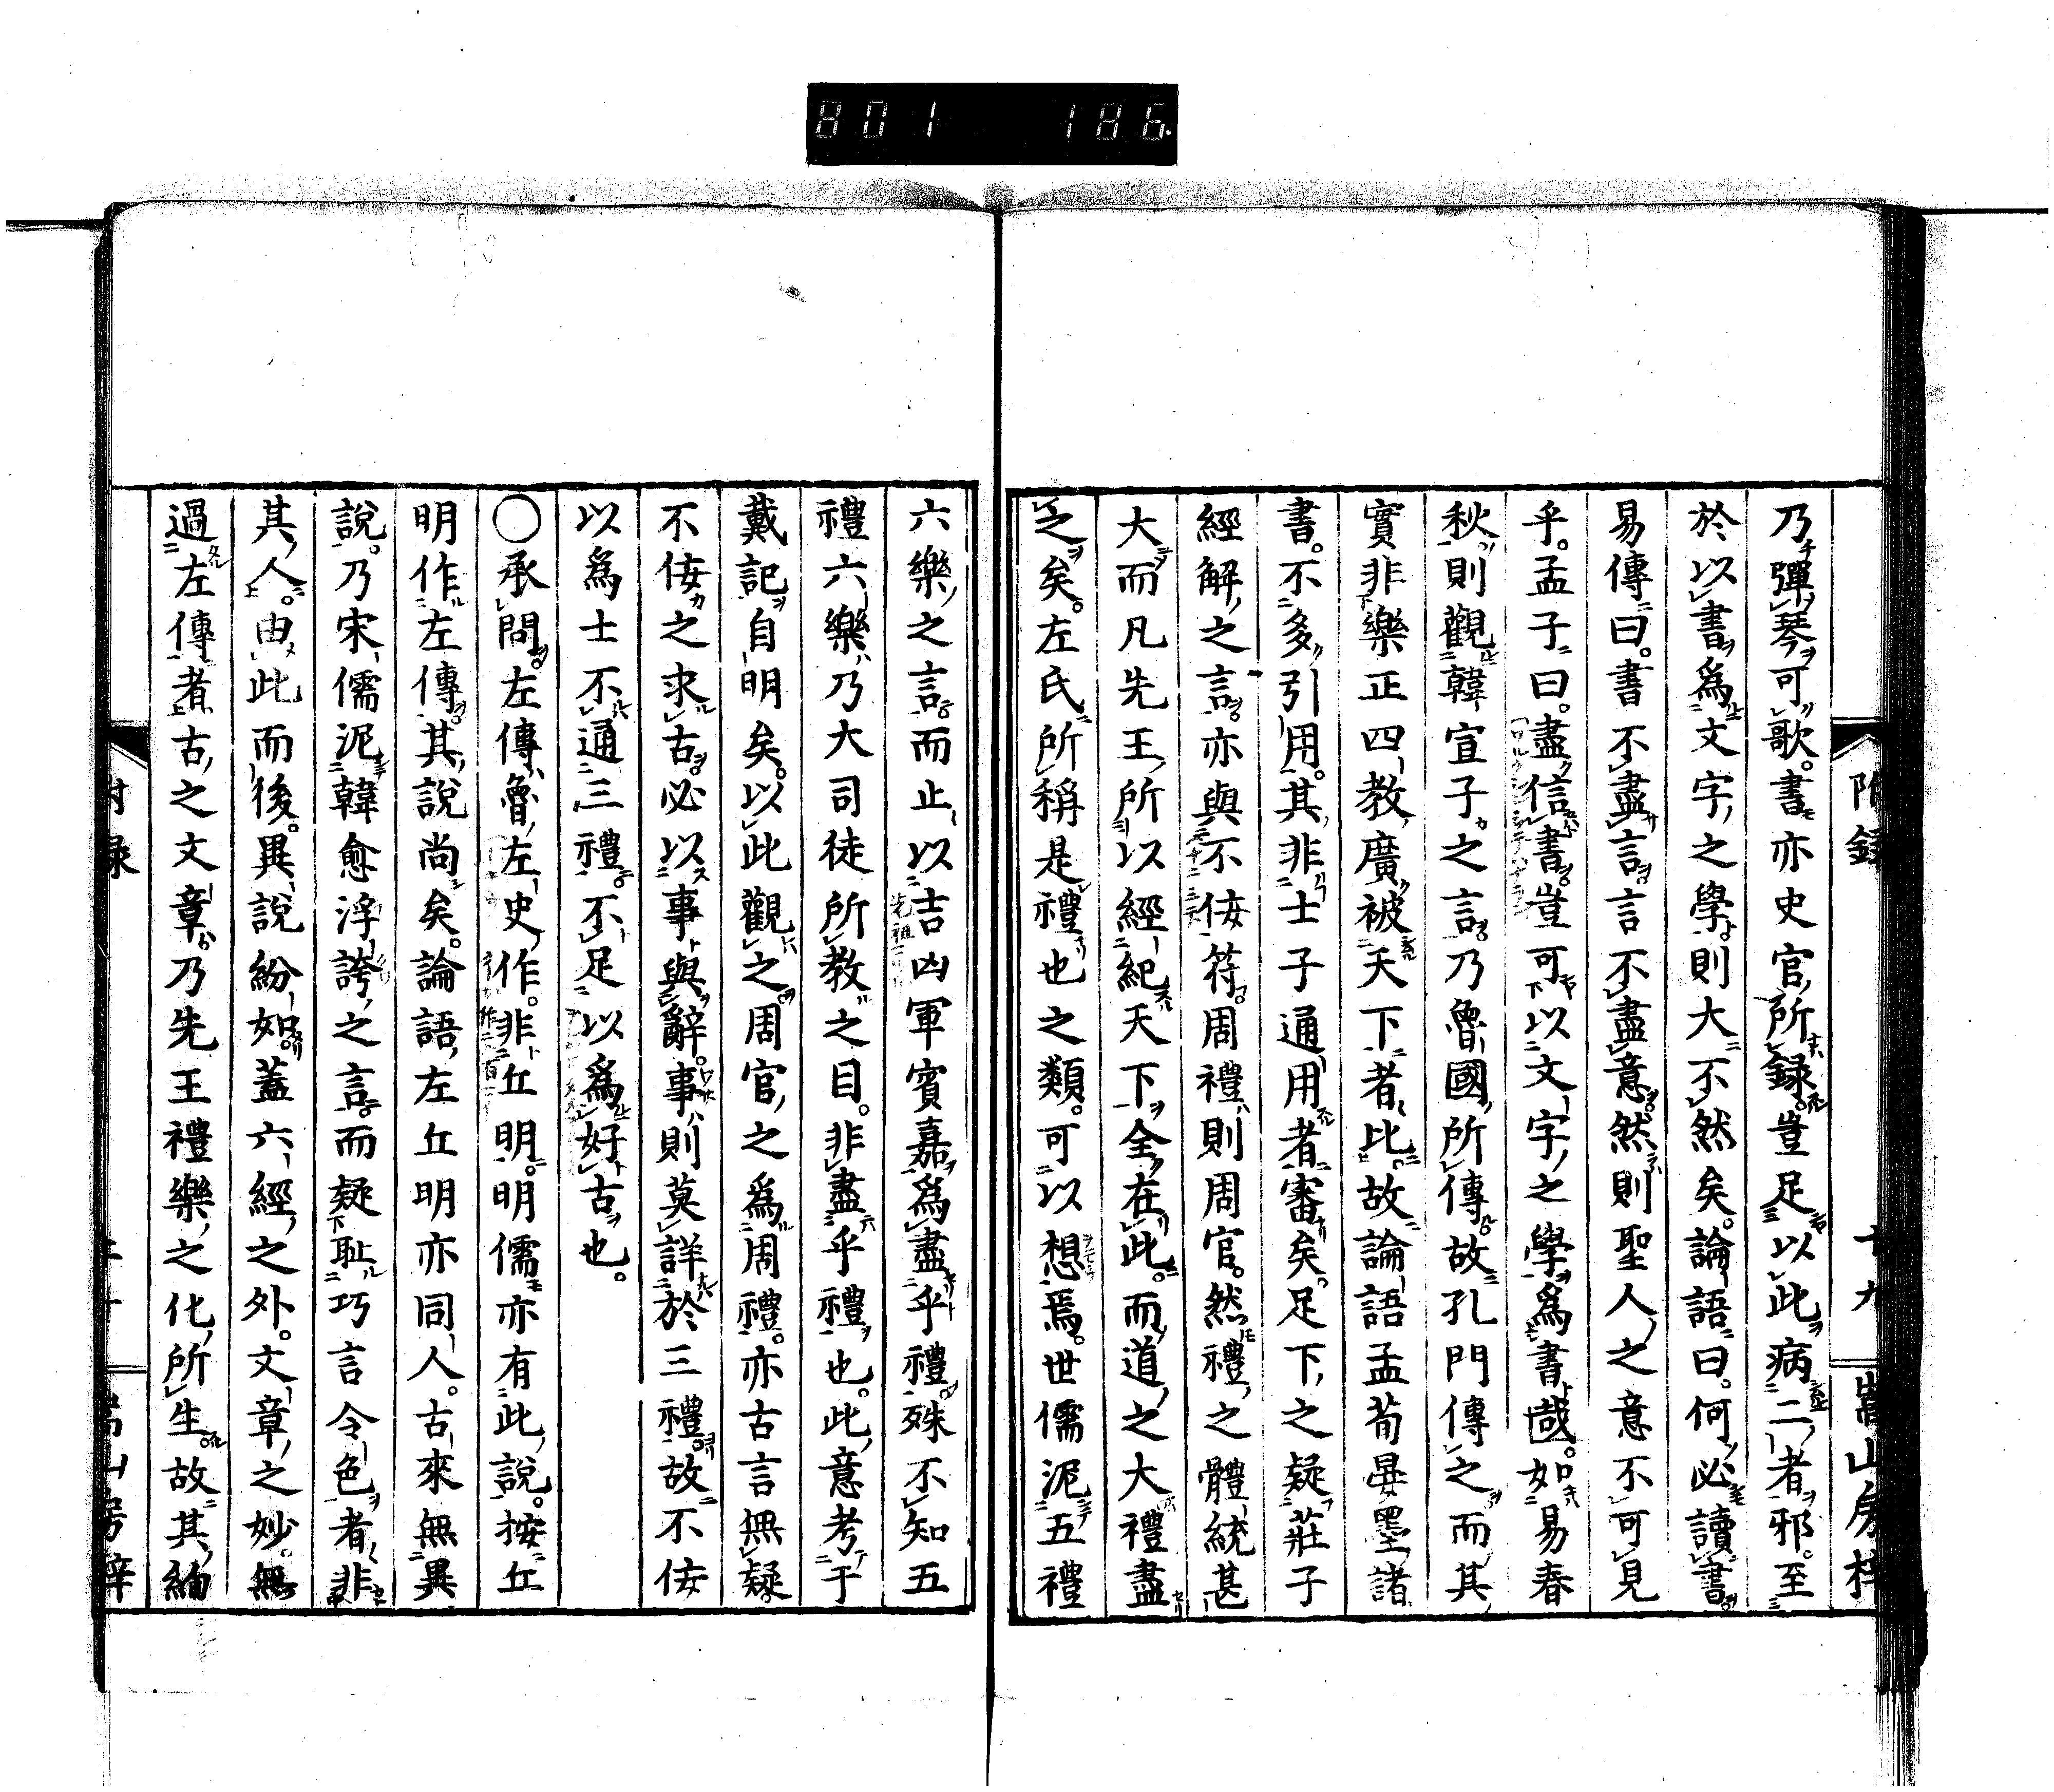 801 186
附録 十九 嵩山房梓
乃彈琴可歌。書亦史官所録。豈足以此病二者邪。至
於以書爲文字之學。則大不然矣。論語曰。何必讀書。
易傳曰。書不盡言。言不盡意。然則聖人之意不可見
乎。孟子曰。盡信書。豈可以文字之學爲書哉。如易春
秋。則觀韓宣子之言。乃魯國所傳。故孔門傳之。而其
實非樂正四教廣被天下者比。故論語孟荀晏墨諸
書。不多引用。其非士子通用者審矣。足下之疑。莊子
經解之言。亦與不佞符。周禮則周官。然禮之體統甚
大。而凡先王所以經紀天下。全在此。而道之大禮盡
之矣。左氏所稱是禮也之類。可以想焉。世儒泥五禮
六樂之言而止。以吉凶軍賓嘉爲盡乎禮。殊不知五
禮六樂乃大司徒所教之目。非盡乎禮也。此意考于
戴記自明矣。以此觀之。周官之爲周禮。亦古言無疑。
不佞之求古。必以事與辭。事則莫詳於三禮。故不佞
以爲士不通三禮。不足以爲好古也。
○承問。左傳魯左史作。非丘明。明儒亦有此說。按丘
明作左傳。其說尚矣。論語左丘明亦同人。古來無異
說。乃宋儒泥韓愈浮誇之言。而疑耻巧言令色者非
其人。由此而後。異說紛如。蓋六經之外。文章之妙。無
過左傳者。古之文章。乃先王禮樂之化所生。故其
附録 嵩山房梓